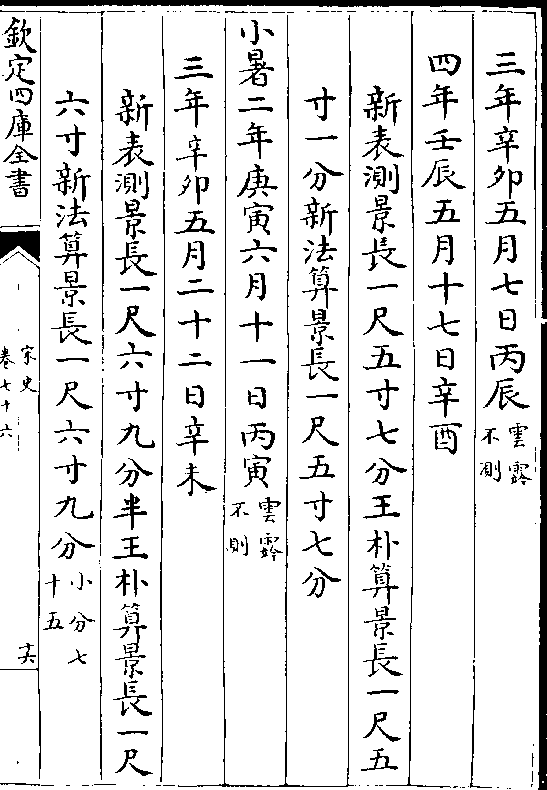 三年辛卯五月七日丙辰雲露不測
四年壬辰五月十七日辛酉
新表測景長一尺五寸七分王朴算景長一尺五
寸一分新法算景長一尺五寸七分
小暑二年庚寅六月十一日丙寅雲露不測
三年辛卯五月二十二日辛未
新表測景長一尺六寸九分半王朴算景長一尺
六寸新法算景長一尺六寸九分小分七十五
欽定四庫全書
宋史
卷七十六
十六